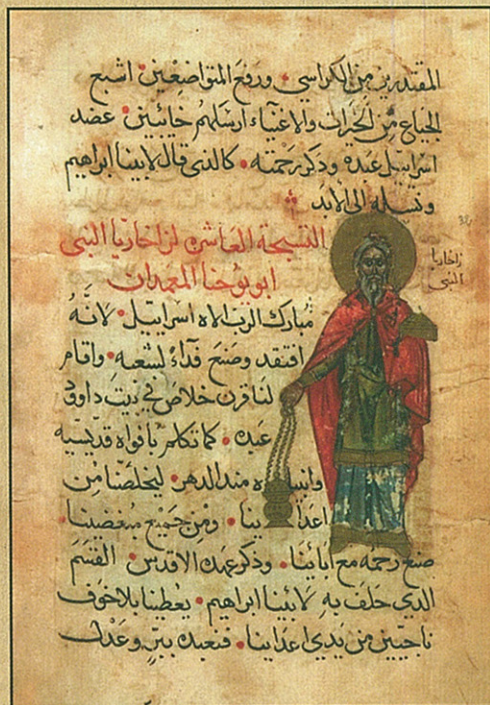 المقتدرين من الكراسي ورفع المتواضعين اشبع
الجياع من الخيرات والاغنياء ارسلهم خائبين عضد
اسراييل عبده وذكر رحمته كالذي قال لابينا ابراهيم
ونسله الى الابد
التسبحة العاشره لزاخاريا النبي
ابو يوحنا المعمدان
زاخاريا
النبي
مبارك الرب الاه اسراييل لانه
افتقد وصنع فداء لشعبه واقام
لنا قرن خلاص في بيت داوود
عبده كما تكلم بافواه قديسيه
وانبيا ه منذ الدهر ليخلصنا من
اعدا ينا ومن جميع مبغضينا
صنع رحمه مع ابائنا وذكر عهده الاقدس القسم
الذي حلف به لابينا ابراهيم يعطينا بلا خوف
ناجيين من يدي اعداينا فنعبده ببر وعدل